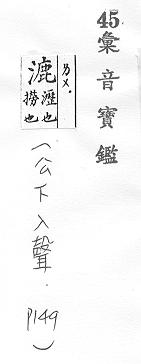 45彙音寶鑑
ㄌㄨ˙
漉 瀝也 撈也
(公下入聲. P149)